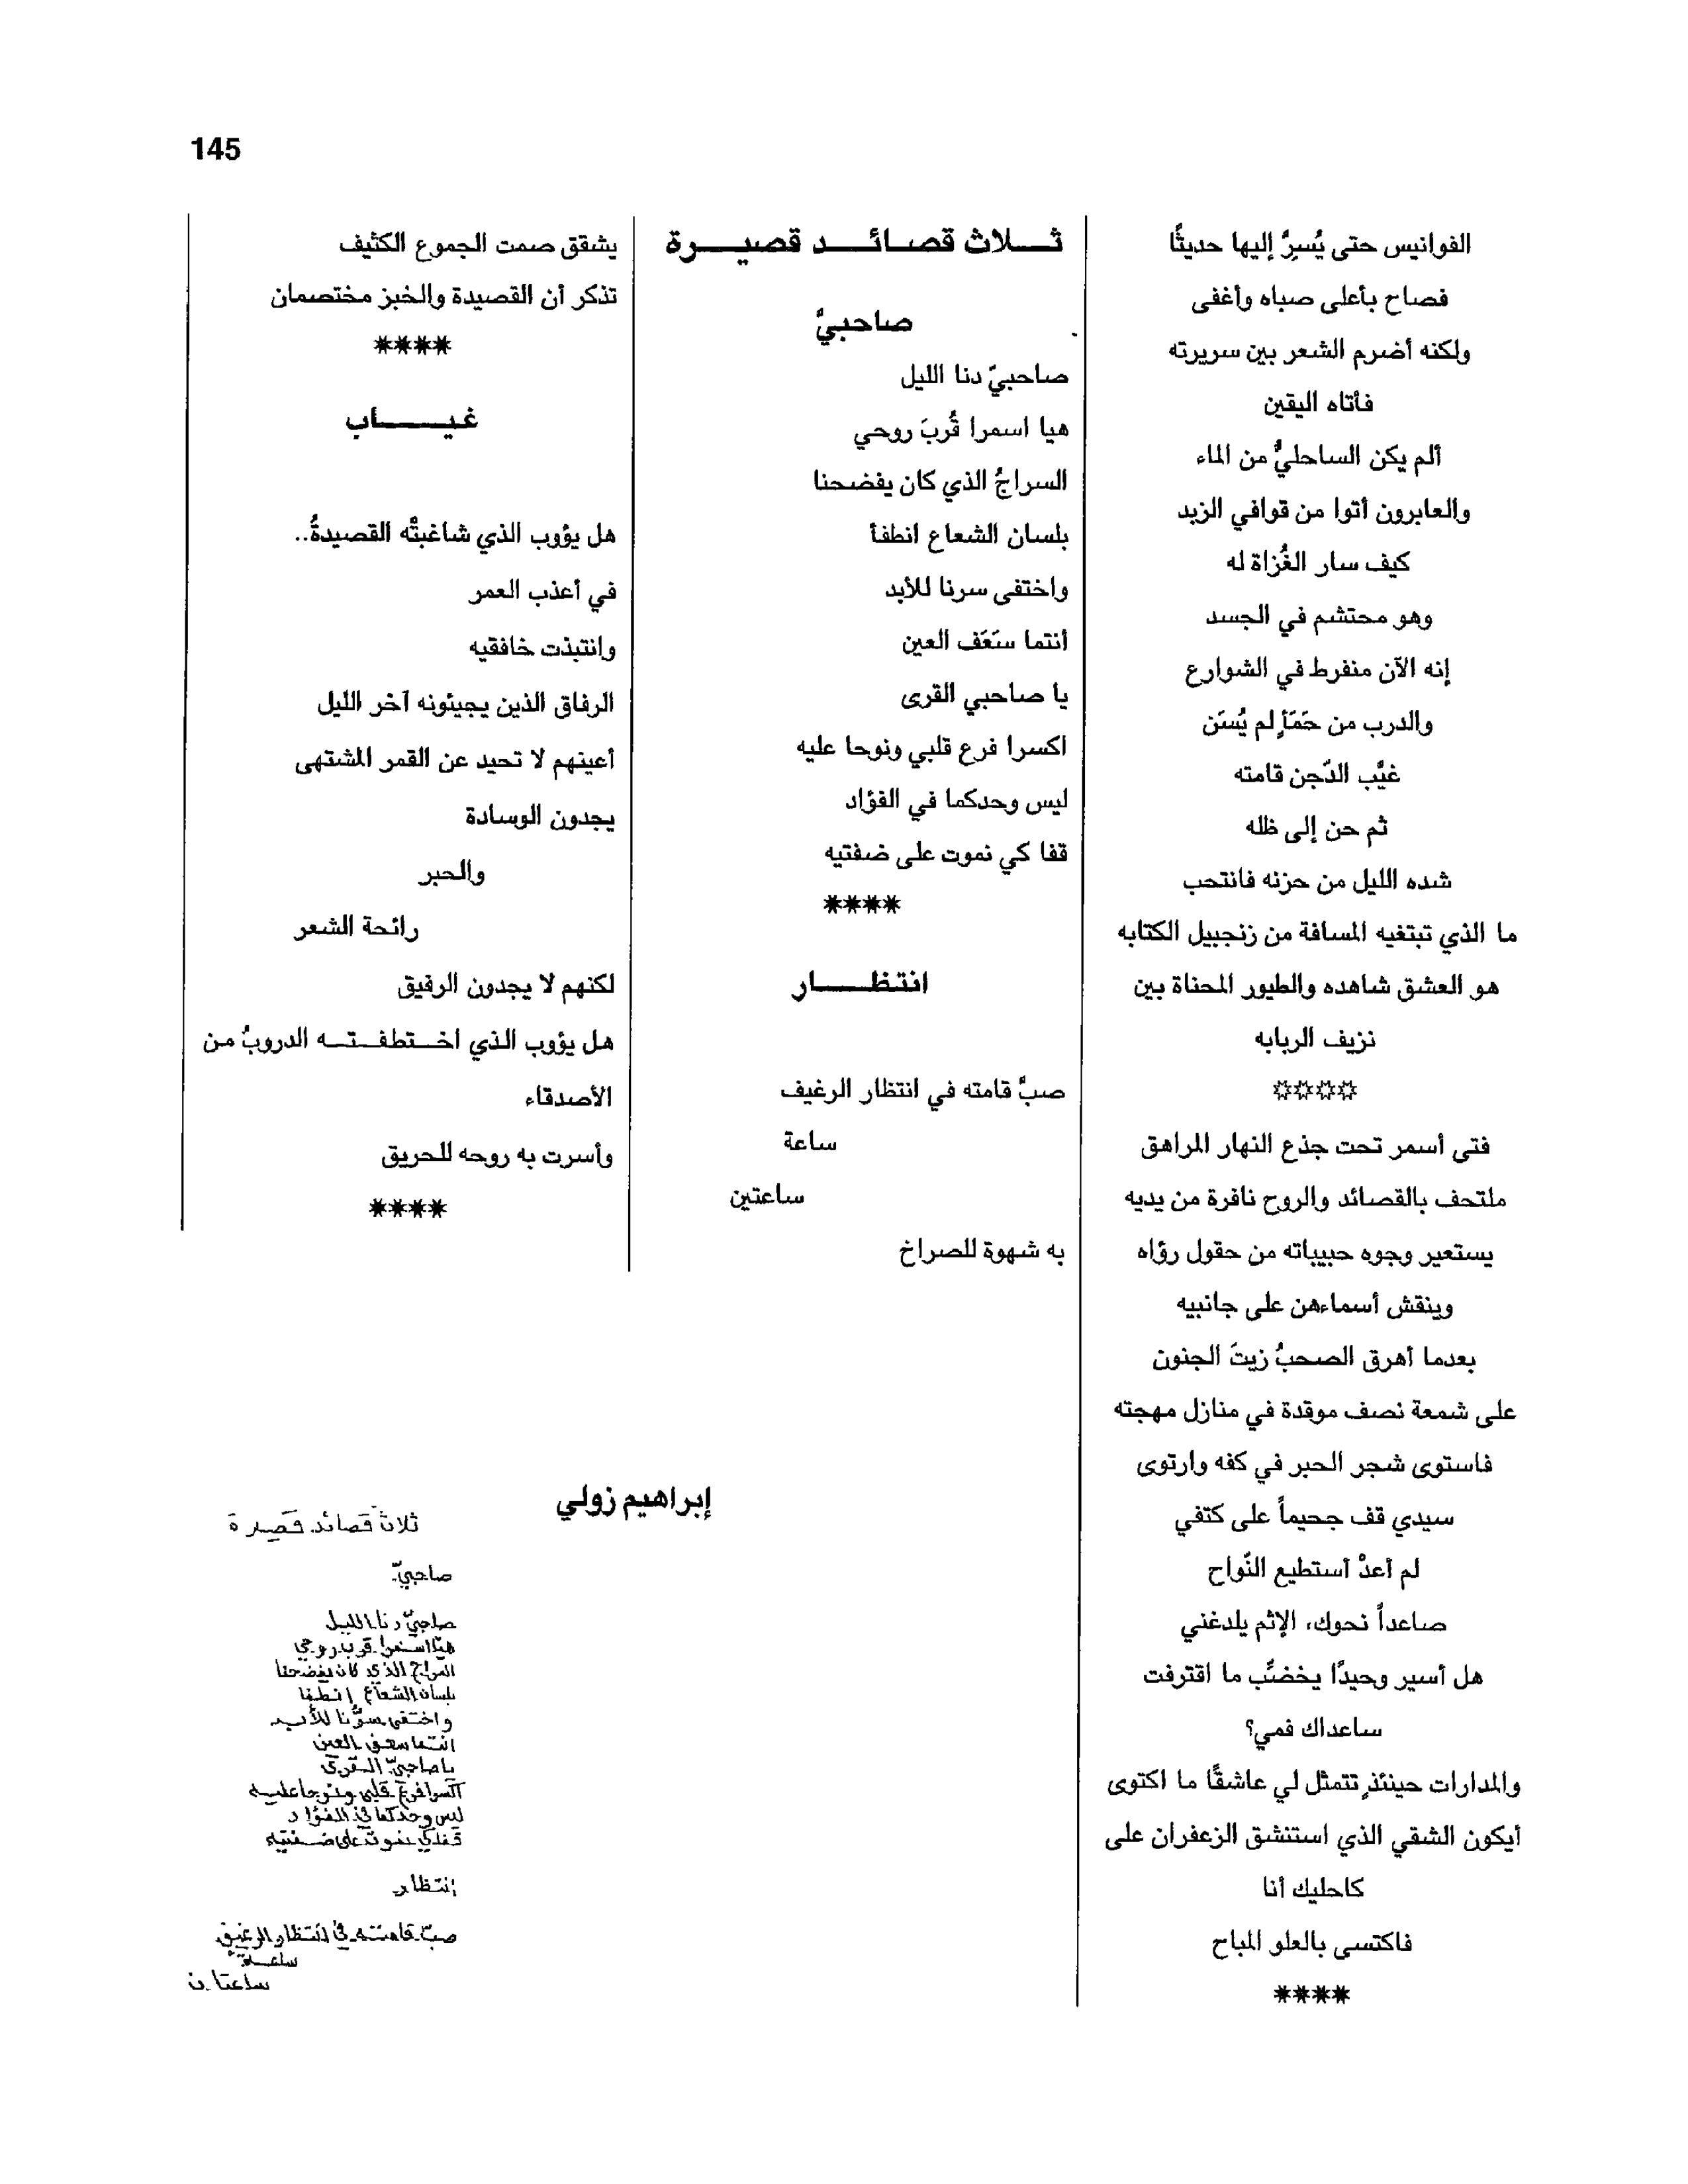 145
الفوانيس حتى يُسِرَّ إليها حديثًا
فصاح بأعلى صباه وأغفى
ولكنه أضرم الشعر بين سريرته
فأتاه اليقين
ألم يكن الساحليُّ من الماء
والعابرون أتوا من قوافي الزبد
كيف سار الغُزاة له
وهو محتشم في الجسد
إنه الآن منفرط في الشوارع
والدرب من حَمَأٍ لم يُسَن
غيَّب الدّجن قامته
ثم حن إلى ظله
شده الليل من حزنه فانتحب
ما الذي تبتغيه المسافة من زنجبيل الكتابه
هو العشق شاهده والطيور المحناة بين
نزيف الربابه
☼☼☼☼
فتى أسمر تحت جذع النهار المراهق
ملتحف بالقصائد والروح نافرة من يديه
يستعير وجوه حبيباته من حقول رؤاه
وينقش أسماءهن على جانبيه
بعدما أهرق الصحبُ زيتَ الجنون
على شمعة نصف موقدة في منازل مهجته
فاستوى شجر الحبر في كفه وارتوى
سيدي قف جحيماً على كتفي
لم أعدْ أستطيع النّواح
صاعداً نحوك، الإثم يلدغني
هل أسير وحيدًا يخضِّب ما اقترفت
ساعداك فمي؟
والمدارات حينئذٍ تتمثل لي عاشقًا ما اكتوى
أيكون الشقي الذي استنشق الزعفران على
كاحليك أنا
فاكتسى بالعلو المباح
****
ثـــلاث قصـائـــد قصيـــرة
صاحبيَّ
صاحبيّ دنا الليل
هيا اسمرا قُربَ روحي
السراجُ الذي كان يفضحنا
بلسان الشعاع انطفأ
واختفى سرنا للأبد
أنتما سَعَف العين
يا صاحبي القرى
اكسرا فرع قلبي ونوحا عليه
ليس وحدكما في الفؤاد
قفا كي نموت على ضفتيه
****
انتظـــــار
صبَّ قامته في انتظار الرغيف
ساعة
ساعتين
به شهوة للصراخ
يشقق صمت الجموع الكثيف
تذكر أن القصيدة والخبز مختصمان
****
غيـــــاب
هل يؤوب الذي شاغبتْه القصيدةُ..
في أعذب العمر
وانتبذت خافقيه
الرفاق الذين يجيئونه آخر الليل
أعينهم لا تحيد عن القمر المشتهى
يجدون الوسادة
والحبر
رائحة الشعر
لكنهم لا يجدون الرفيق
هل يؤوب الذي اخـتـطفـتـه الدروبُ من
الأصدقاء
وأسرت به روحه للحريق
****
إبراهيم زولي
ثلاث قصائد قصيرة
صاحبيّ
صاحبيّ دنا الليل
هيّا اسمرا قرب روحي
السّراج الذي كان يفضحنا
بلسان الشعاع انطفا
واختفى سرُّنا للأبد
انتما سعف العين
يا صاحبيّ القرى
اكسرا فرع قلبي ونوحا عليه
ليس وحدكما في الفؤاد
قفا كي نموت على ضفتيه
إنتظار
صبّ قامته في انتظار الرغيف
ساعة
ساعتان